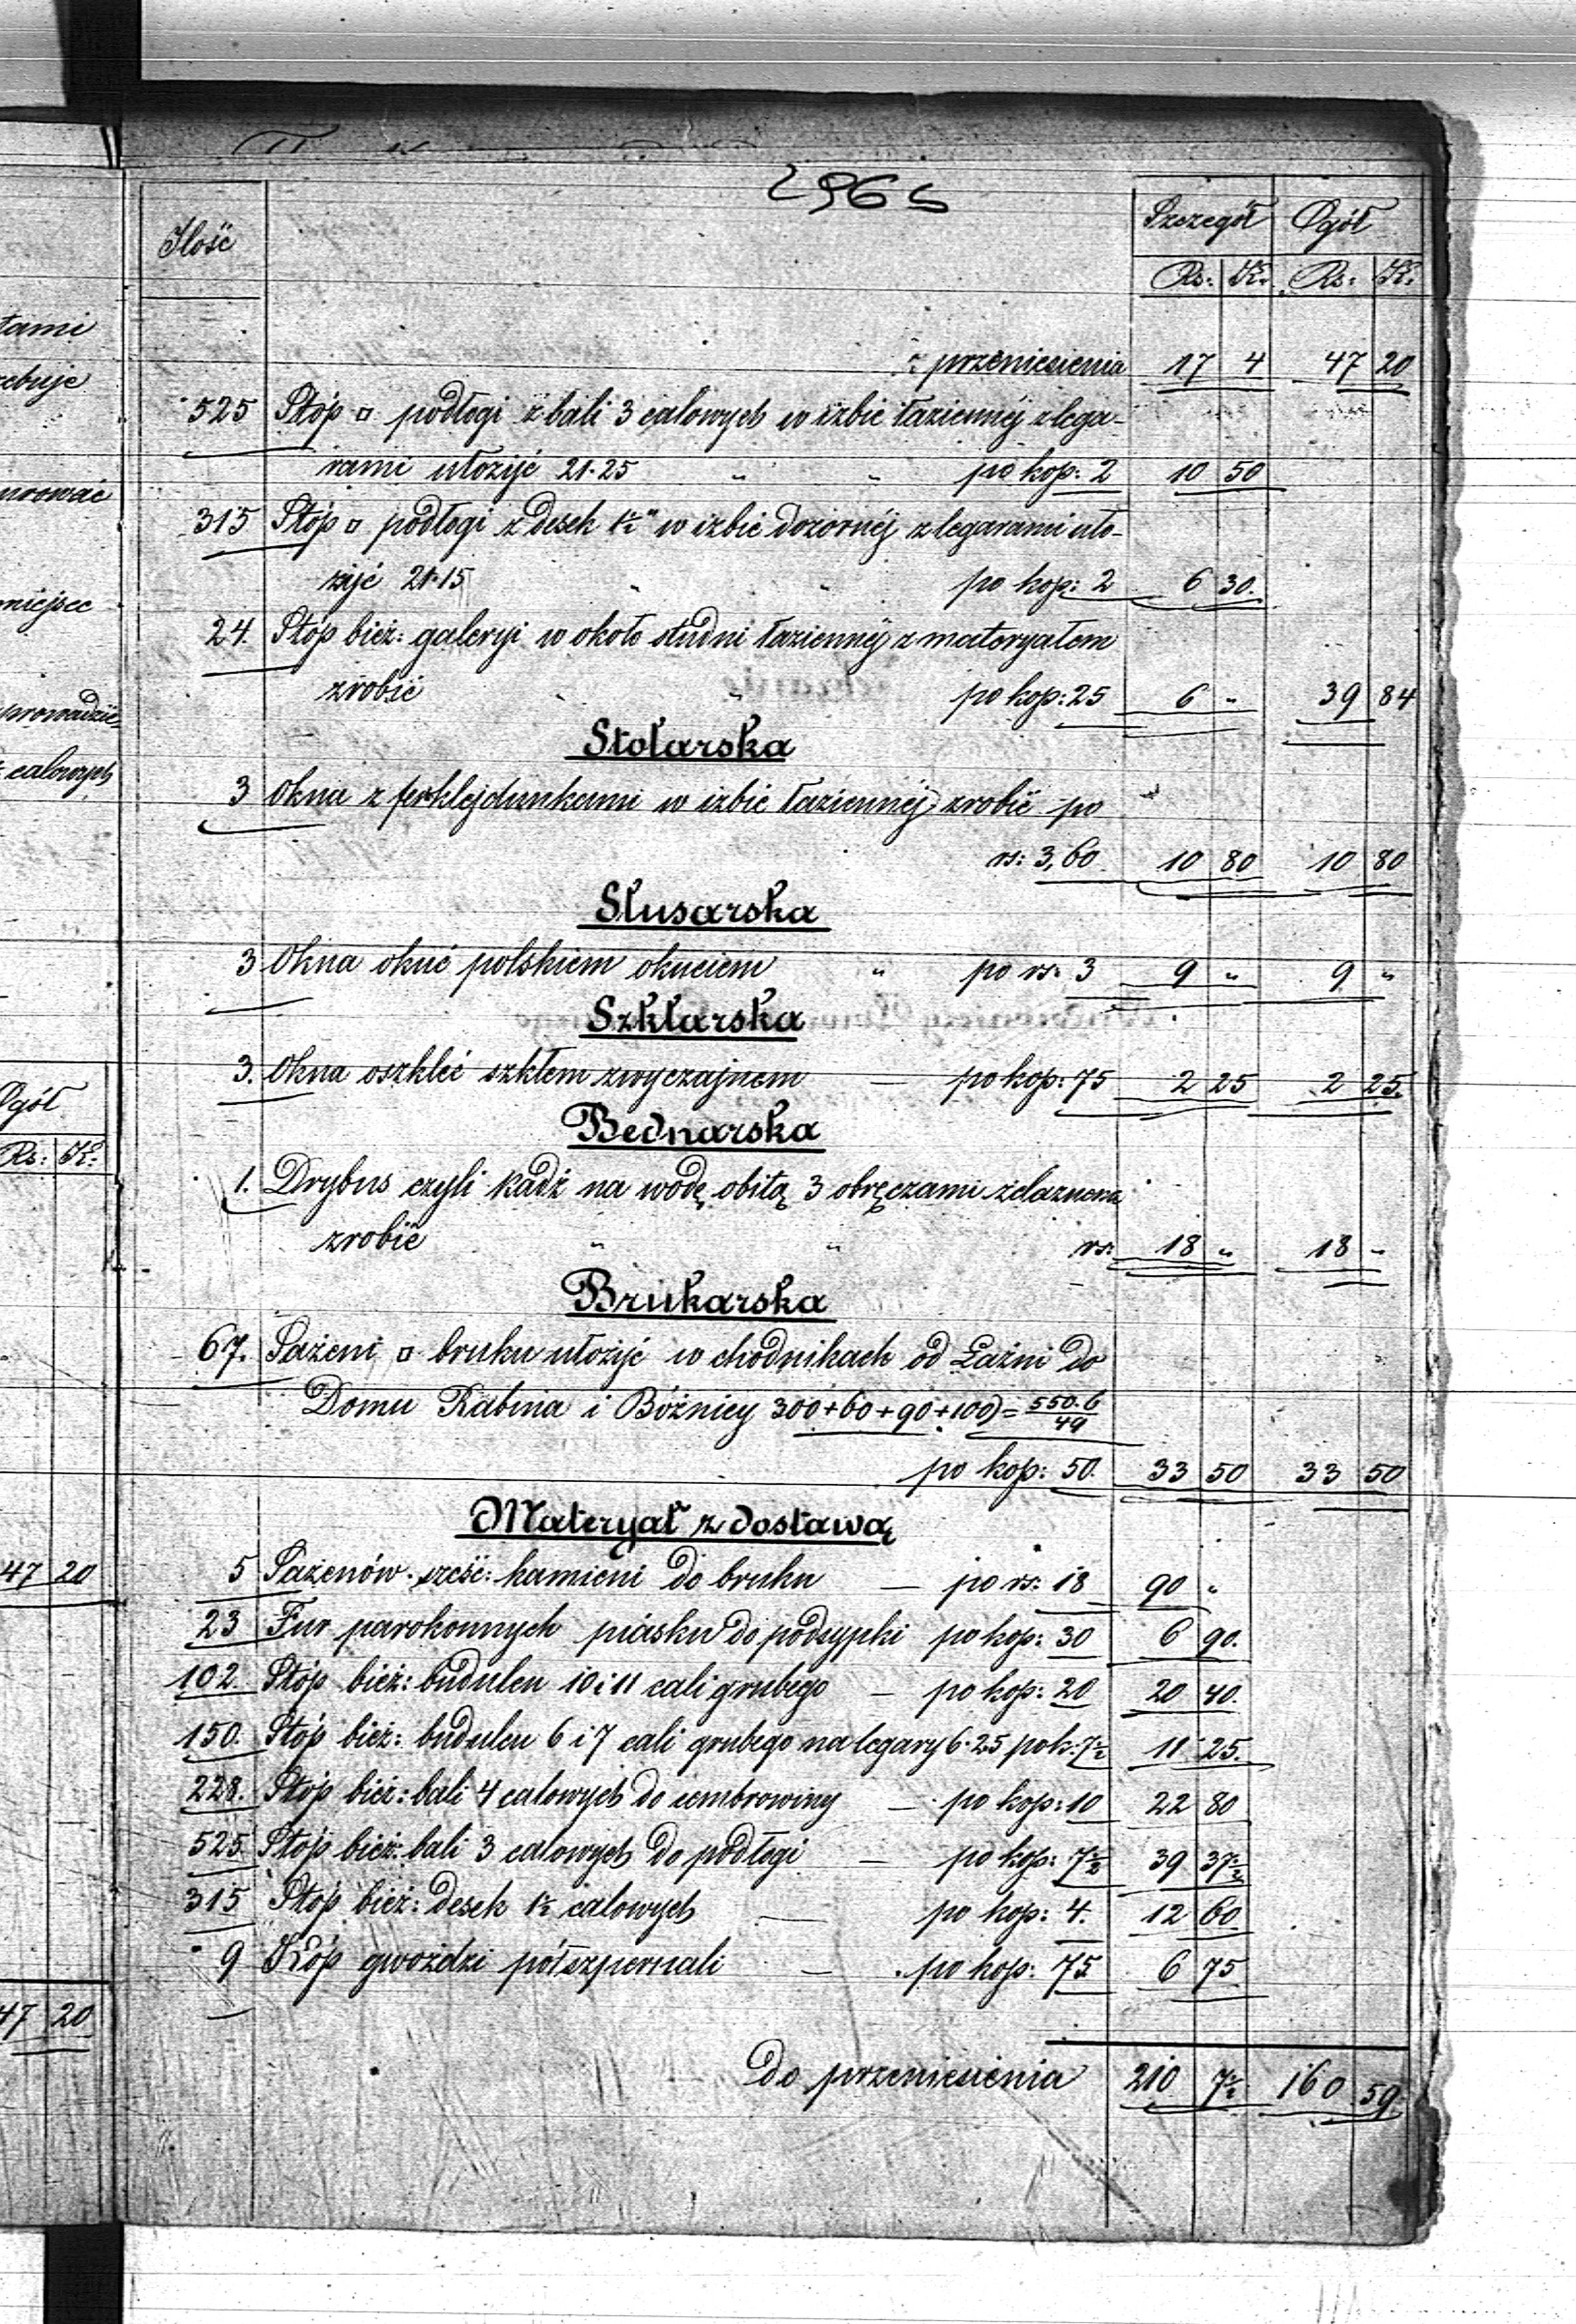 tami
rebuje
urować
miejsce
prowadzić
calowych
Ogół
Rs: K:
47 20
47 20
296
Ilość Szczegół Ogół
Rs: K. Rs: K.
z przeniesienia 17 4 47 20
525 Stóp □ podłogi z bali 3 calowych w izbie łaziennéj z lega-
rami ułożyć 21·25 " " po kop: 2 10 50
315 Stóp □ podłogi z desek 1½" w izbie dozornéj z legarami uło-
żyć 21·15 " " po kop: 2 6 30.
24. Stóp bież: galeryi w około studni łaziennéj z materyałem
zrobić " " po kop: 25 6 " 39 84
Stolarska
3 Okna z ferklejdunkami w izbie łaziennéj zrobić po
rs: 3,60 10 80 10 80
Slusarska
3 Okna okuć polskiem okuciem " po rs: 3 9 " 9 "
Szklarska
3. Okna oszklić szkłem zwyczajnem — po kop: 75 2 25 2 25.
Bednarska
1. Drybus czyli kadź na wodę obitą 3 obręczami żelaznemi
zrobić " " rs: 18 " 18 "
Brukarska
67. Sążeni □ bruku ułożyć w chodnikach od Łaźni do
Domu Rabina i Bóżnicy 300+60+90+100)= 550·6/49
po kop: 50. 33 50 33 50
Materyał z dostawą
5 Sążenów sześć: kamieni do bruku — po rs: 18 90 "
23 Fur parokonnych piasku do podsypki po kop: 30 6 90.
102. Stóp bież: budulcu 10 i 11 cali grubego — po kop: 20 20 40.
150. Stóp bież: budulcu 6 i 7 cali grubego na legary 6·25 po k: 7½ 11 25.
228. Stóp bież: bali 4 calowych do cembrowiny — po kop: 10 22 80
525. Stóp bież: bali 3 calowych do podłogi — po kop: 7½ 39 37½
315 Stóp bież: desek 1½ calowych — po kop: 4. 12 60
9 Kóp gwoździ półszpernali — po kop: 75 6 75
Do przeniesienia 210 7½ 160 59.